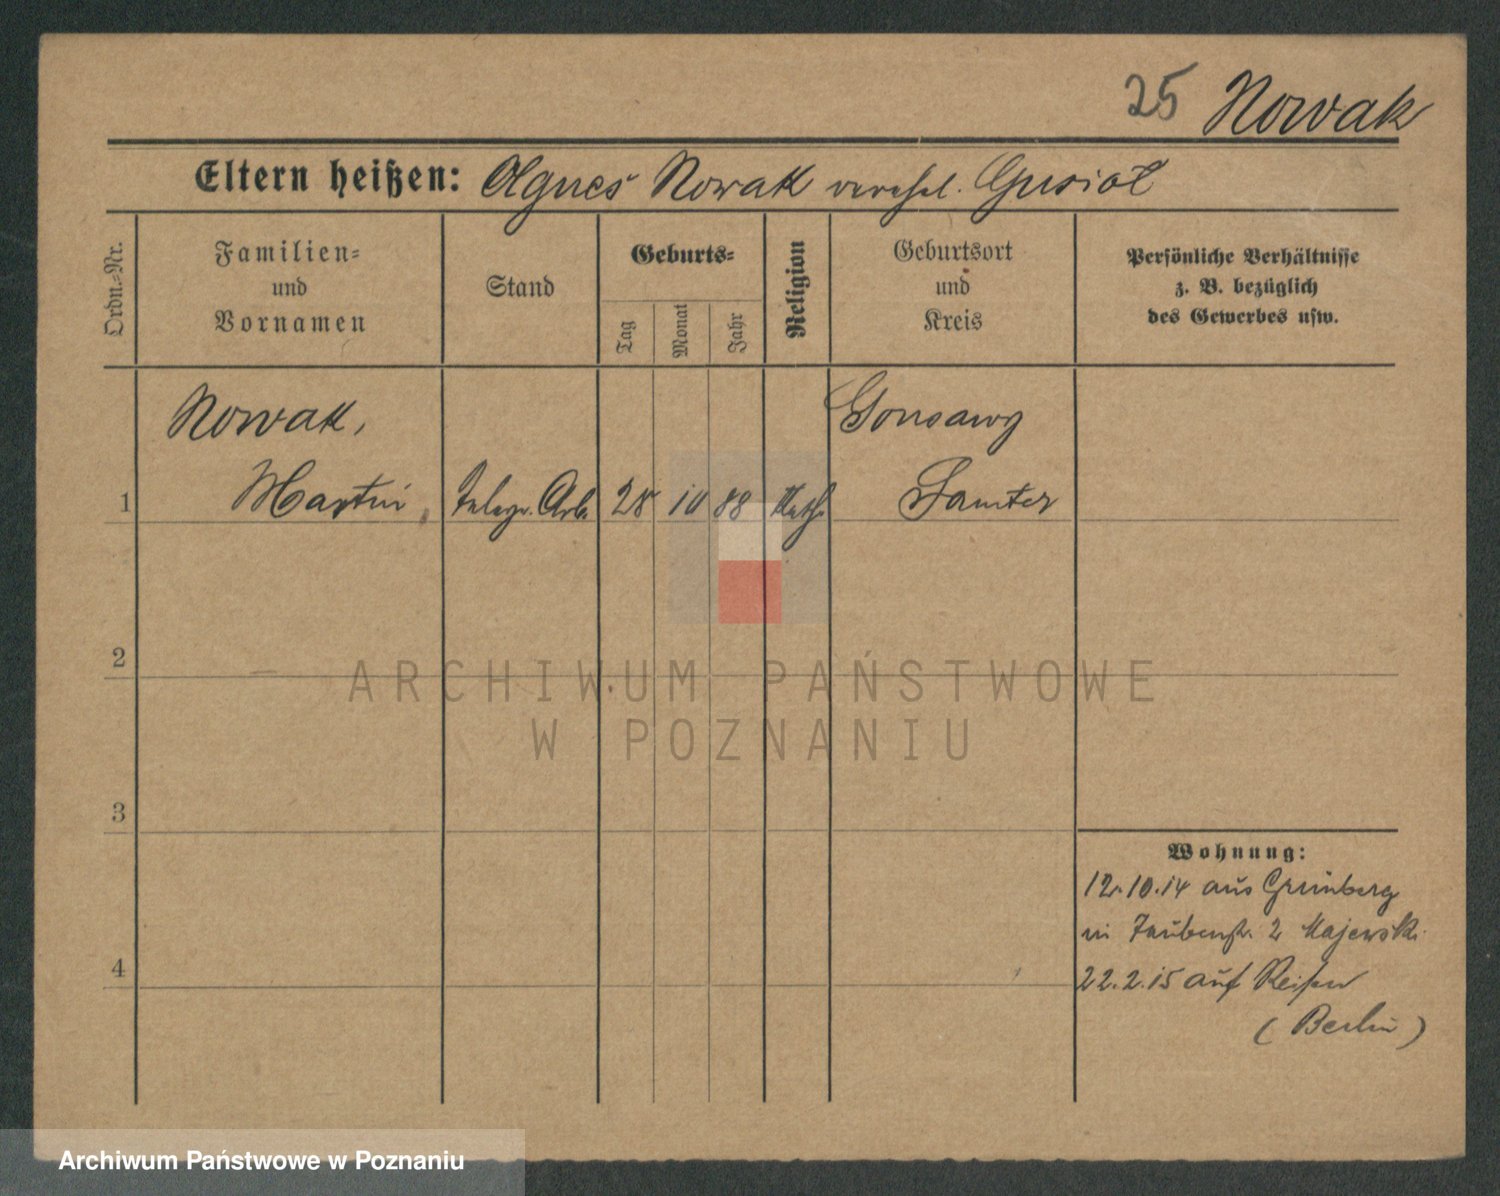 25 Nowak
Eltern heißen: Agnes Nowak verehel. Gusiol
Ordn.-Nr.
Familien-
und
Vornamen
Stand
Geburts-
Tag
Monat
Jahr
Religion
Geburtsort
und
Kreis
Persönliche Verhältnisse
z. B. bezüglich
des Gewerbes usw.
Nowak,
Gonsawy
1 Martin Telegr. Arb. 28 10 88 Kath. Samter
2
ARCHIWUM PAŃSTWOWE
W POZNANIU
3
Wohnung:
12.10.14 aus Grünberg
in Taubenstr. 2 Majewski
4
22.2.15 auf Reisen
(Berlin)
Archiwum Państwowe w Poznaniu